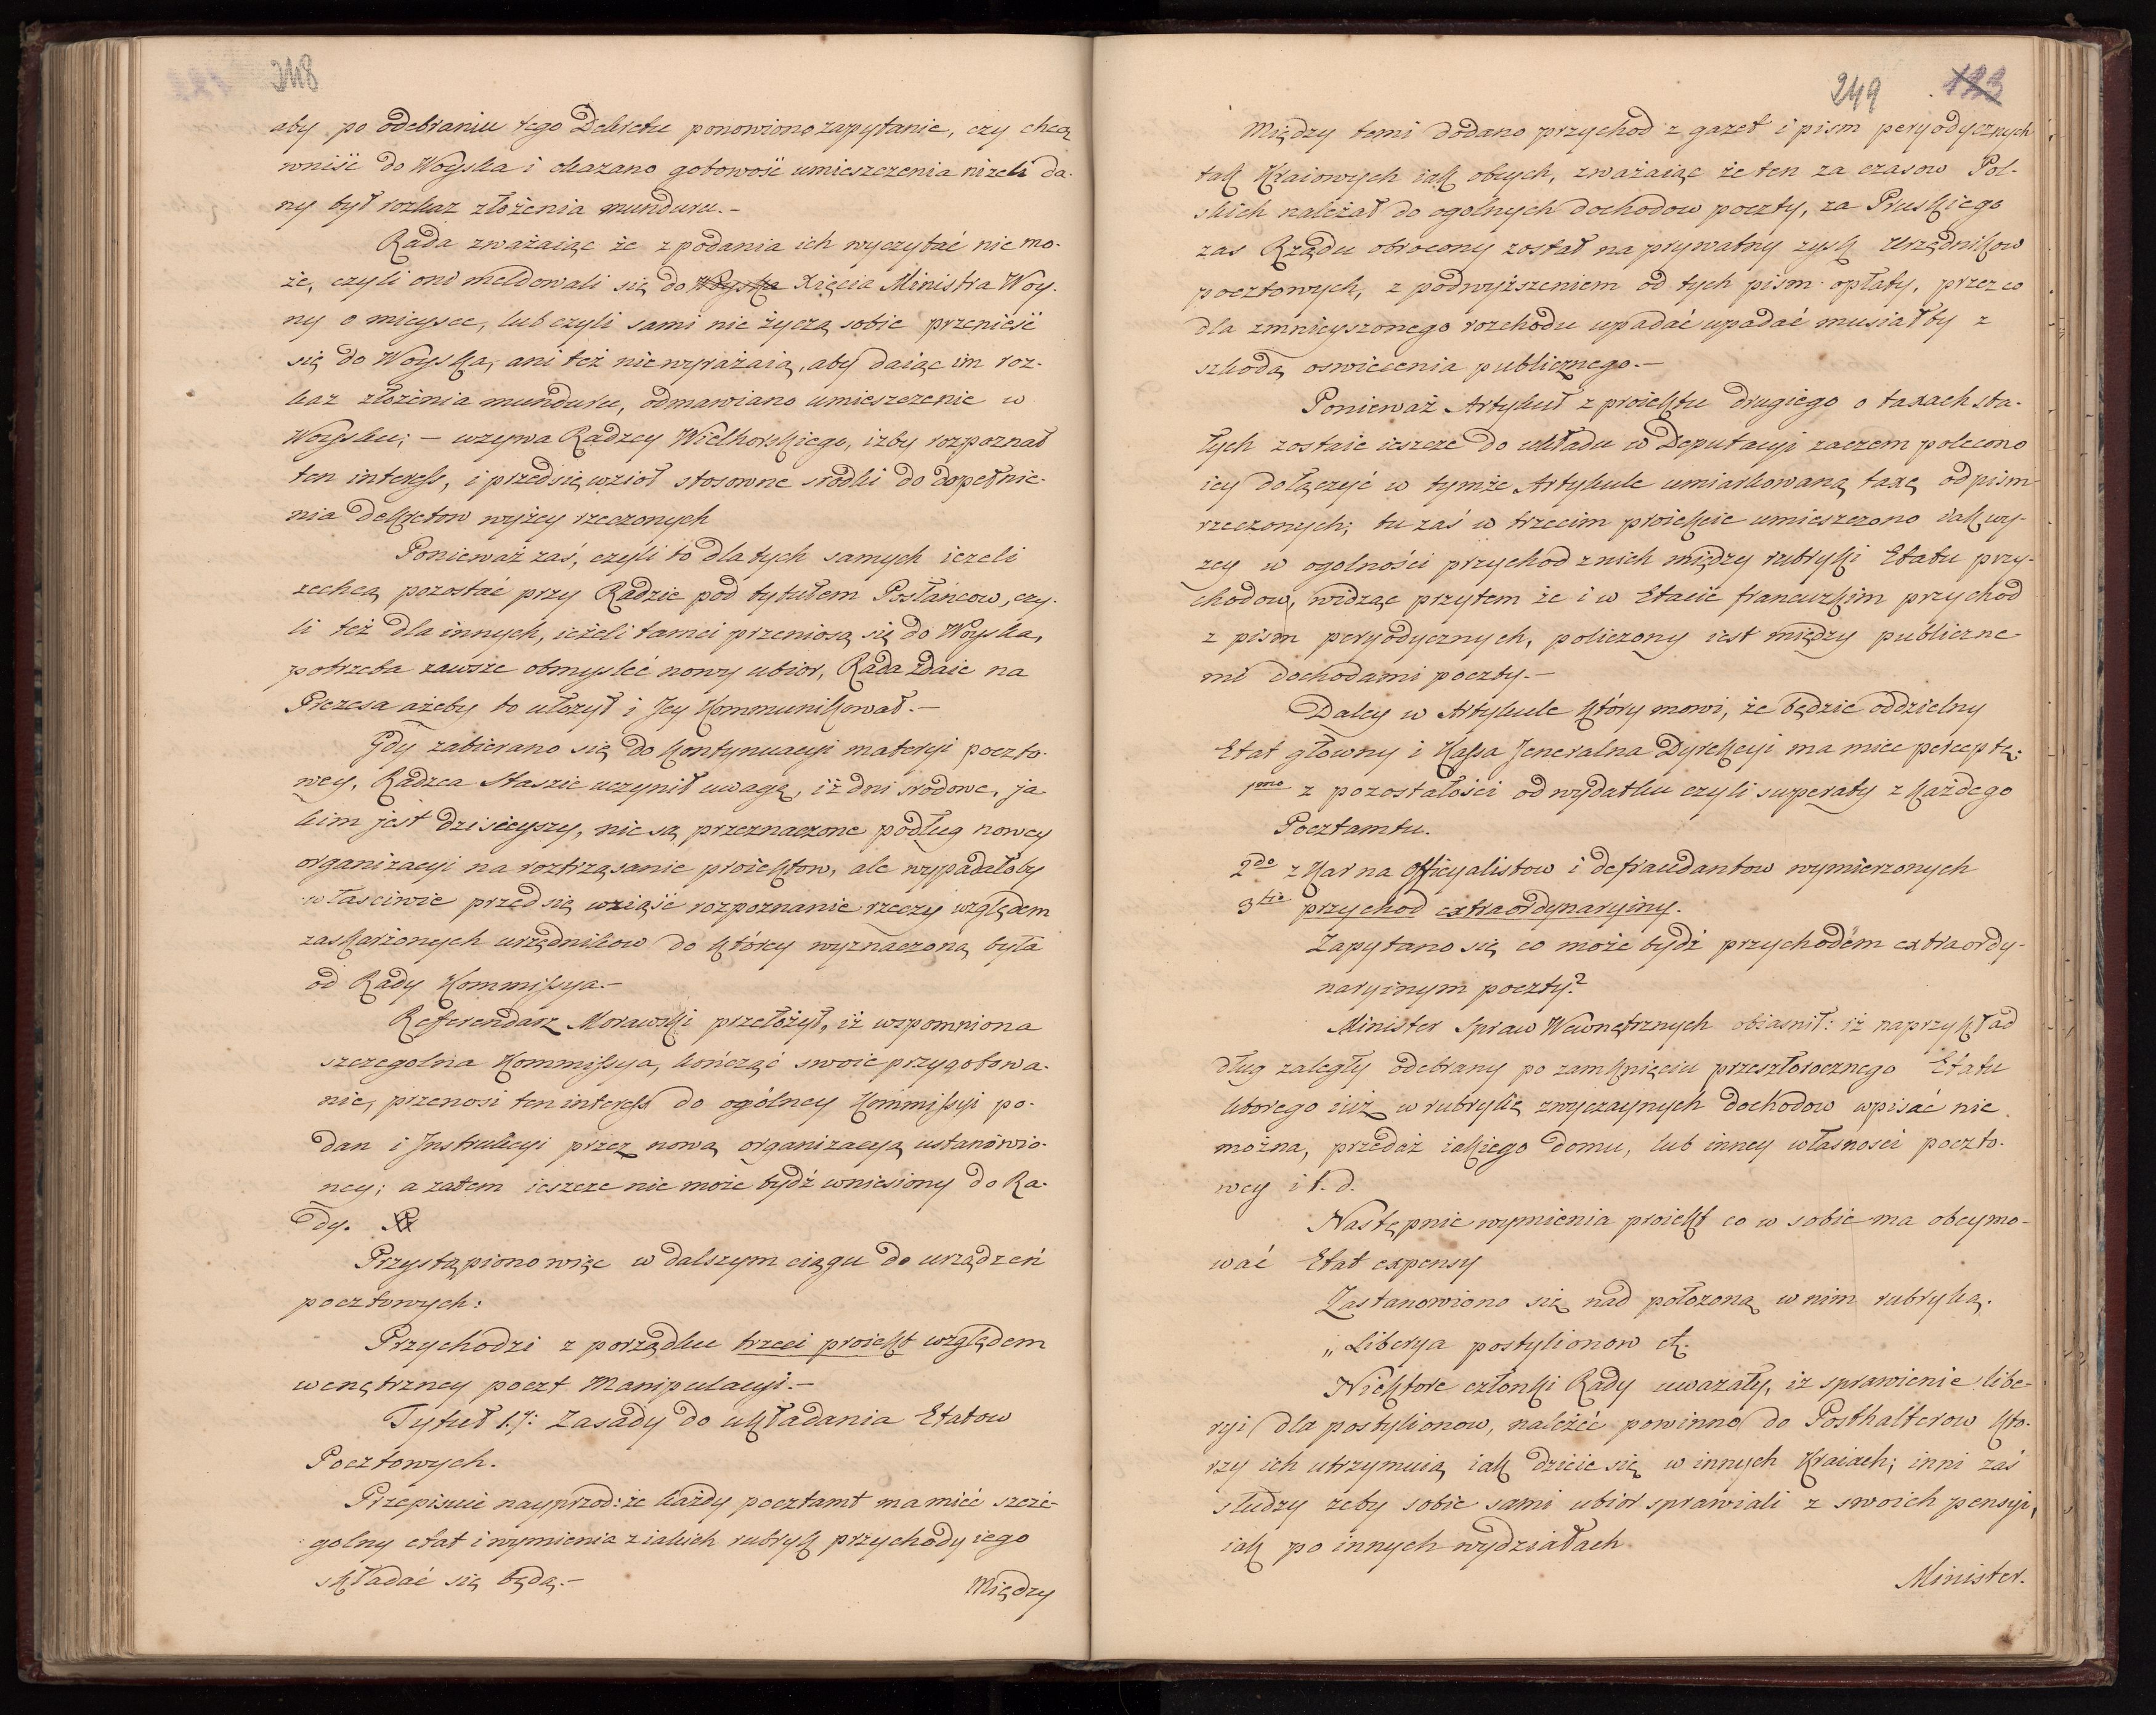 248
aby po odebraniu tego Dekretu ponowiono zapytanie, czy chcą
wniść do Woyska i okazano gotowość umieszczenia niżeli da-
ny był rozkaz złożenia munduru.-
Rada zważaiąc że z podania ich wyczytać nie mo-
że, czyli oni meldowali się do Woyska Xięcia Ministra Woy-
ny o mieysce, lub czyli sami nie życzą sobie przenieść
się do Woyska, ani też nie wyrażaią, aby daiąc im roz-
kaz złożenia munduru, odmawiano umieszczenie w
Woysku; - wzywa Radzcy Wielhorskiego, iżby rozpoznał
ten interess, i przedsięwzioł stosowne srodki do dopełnie-
nia dekretow wyżey rzeczonych
Ponieważ zaś, czyli to dla tych samych ieżeli
zechcą pozostać przy Radzie pod tytułem Posłańcow, czy-
li też dla innych, ieżeli tamci przeniosą się do Woyska,
potrzeba zawsze obmysleć nowy ubior, Rada zdaie na
Prezesa ażeby to ułożył i Jey kommunikował.-
Gdy zabierano się do kontynuacyi materyi poczto-
wey, Radzca Staszic uczynił uwagę, iż dni srodowe, ja-
kim jest dzisieyszy, nie są przeznaczone podług nowey
organizacyi na roztrząsanie proiektow, ale wypadałoby
właściwie przed się wziąść rozpoznanie rzeczy względem
zaskarżonych urzędnikow do którey wyznaczoną była
od Rady Kommissya.-
Referendarz Morawski przełożył, iż wspomniona
szczegolna Kommissya, kończąc swoie przygotowa-
nie, przenosi ten interess do ogólney Kommissyi po-
dan i Instrukcyi przez nową organizacyą ustanowio-
ney; a zatem ieszcze nie może bydź wniesiony do Ra-
dy.
Przystąpiono więc w dalszym ciągu do urządzeń
pocztowych:
Przychodzi z porządku trzeci proiekt względem
wenętrzney poczt Manipulacyi.-
Tytuł 1.y: Zasady do układania Etatow
Pocztowych.
Przepisuie nayprzod: że każdy pocztamt ma mieć szcze-
golny etat i wymienia z iakich rubryk przychody iego
składać się będą.-
Między
249 123
Między temi dodano przychod z gazet i pism peryodycznych
tak Kraiowych iak obcych, zważaiąc że ten za czasow Pol-
skich należał do ogolnych dochodow poczty, za Pruskiego
zas Rządu obrocony został na prywatny zysk Urzędnikow
pocztowych, z podwyższeniem od tych pism opłaty, przez co
dla zmnieyszonego rozchodu upadać upadać musiałby z
szkodą oswiecenia publicznego.-
Ponieważ Artykuł z proiektu drugiego o taxach sta-
łych zostaie ieszcze do układu w Deputacyi zaczem polecono
iey dołączyć w tymże Artykule umiarkowaną taxę od pism
rzeczonych; tu zaś w trzecim proiekcie umieszczono iak wy-
zey w ogolności przychod z nich między rubryki Etatu przy-
chodow, widząc przytem że i w Etacie francuzkim przychod
z pism peryodycznych, policzony iest między publiczne-
mi dochodami poczty.-
Daley w Artykule który mowi, że będzie oddzielny
Etat główny i Kassa Jeneralna Dyrekcyi ma miec perceptę:
1mo z pozostałości od wydatku czyli superaty z każdego
Pocztamtu.
2do z Kar na Officyalistow i defraudantow wymierzonych
3tio przychod extraordynaryiny.
Zapytano się co może bydź przychodem extraordy-
naryinym poczty?
Minister Spraw Wewnętrznych obiasnił: iż naprzykład
dług zaległy odebrany po zamknięciu przeszłorocznego Etatu
ktorego iuż w rubrykę zwyczaynych dochodow wpisać nie
można, przedaż iakiego domu, lub inney własnosci poczto-
wey i t. d.
Następnie wymienia proiekt co w sobie ma obeymo-
wać Etat expensy
Zastanowiono się nad położoną w nim rubryką.
„Liberya postylionow etc.
Niektore członki Rady uważały, iż sprawienie libe-
ryi dla postylionow, należeć powinno do Posthalterow kto-
rzy ich utrzymuią iak dzieie się w innych Kraiach; inni zaś
słudzy zeby sobie sami ubior sprawiali z swoich pensyi,
iak po innych wydziałach.
Minister.